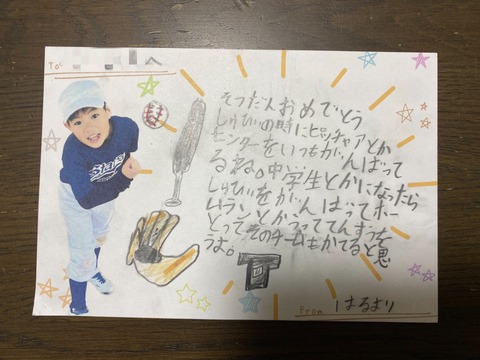 To
そつだんおめでとう
しゅびの時にピッチャアとか
センターをいつもがんばって
るね。中学生とかになったら
しゅびをがんばってホー
ムランとかうっててんすうを
とってそのチームもかてると思
うよ。
From はるより